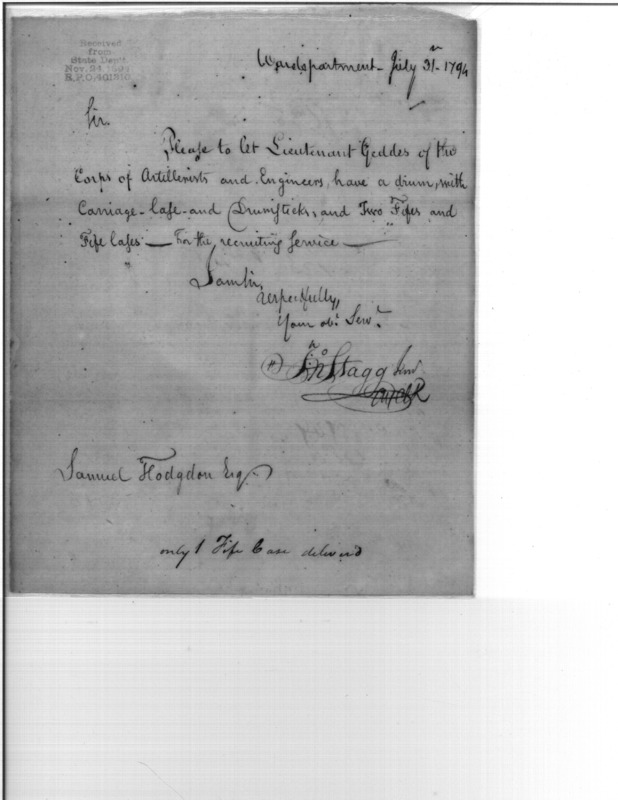 Received
from
State Dep't
Nov. 24, 1894
R.P.O. 401310
War department July 31st 1794
Sir.
Please to let Lieutenant Geddes of the
Corps of Artillerists and Engineers, have a drum, with
Carriage - Case - and Drumsticks, and Two Fifes and
Fife Cases — For the recruiting Service —
I am Sir,
respectfully
Your obt. Servt.
Jno Stagg Junr
Samuel Hodgdon Esqr
only 1 Fife Case deliverd